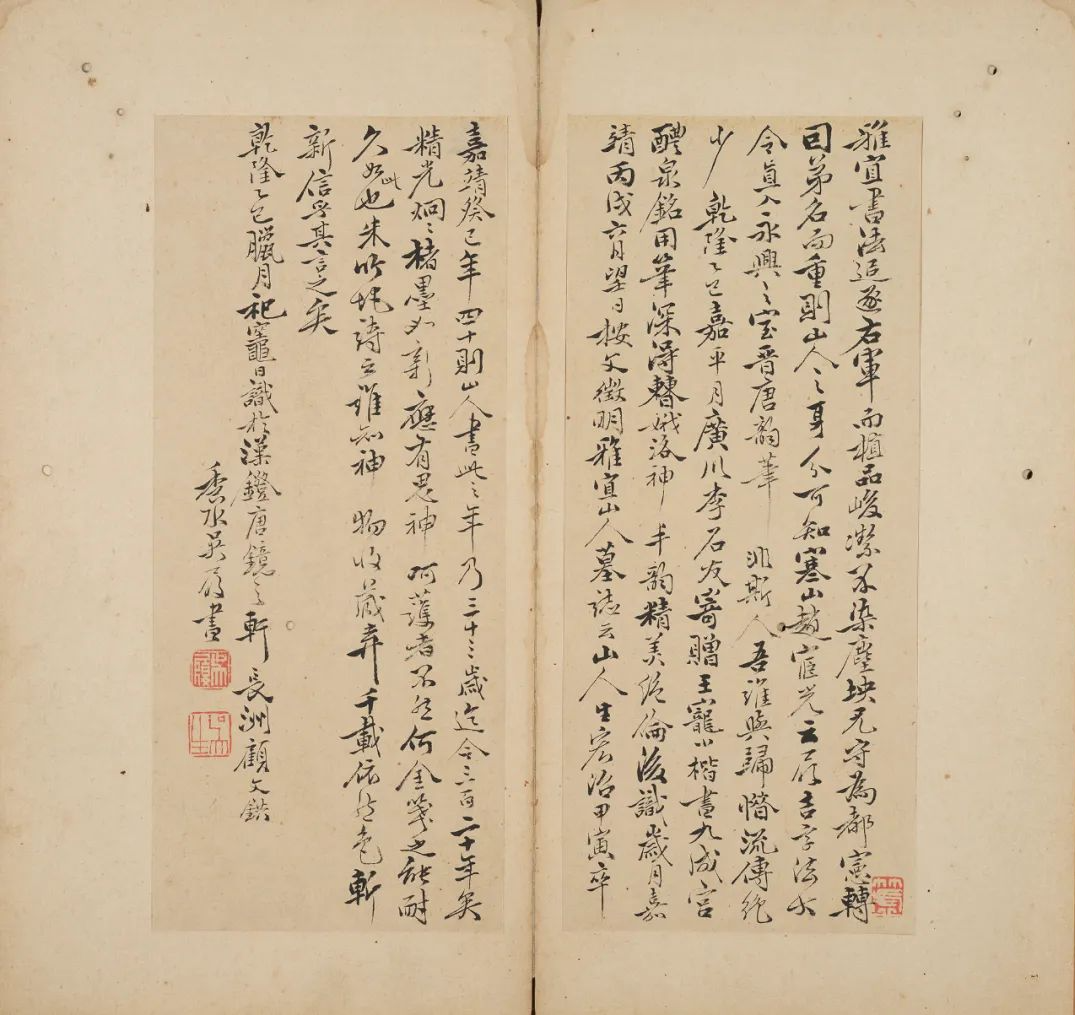 雅宜書法追逐右軍而植品峻潔不染塵坱尤守為都憲轉
司弟名而重則山人之身分可知寒山趙宧光云履吉字法大
令真入永興之室晋唐韵華非斯人吾誰與歸惜流傳絶
少乾隆乙巳嘉平月廣川李石友寄贈王寵小楷書九成宮
醴泉銘用筆深得瞽娥洛神丰韵精美絶倫後識歲月嘉
靖丙戌六月望日按文徵明雅宜山人墓誌云山人生宏治甲寅卒
嘉靖癸巳年四十則山人書此之年乃三十三歲迄今二百六十年矣
精光炯〻楮墨如新應有鬼神呵護者不然何金箋之能耐
久如此也朱竹垞詩云誰知神物收藏弆千載依然色斬
新信乎其言之矣
乾隆乙巳臘月祀竈日識於漢鐙唐鏡之軒長洲顧文鉷
秀水吳履書